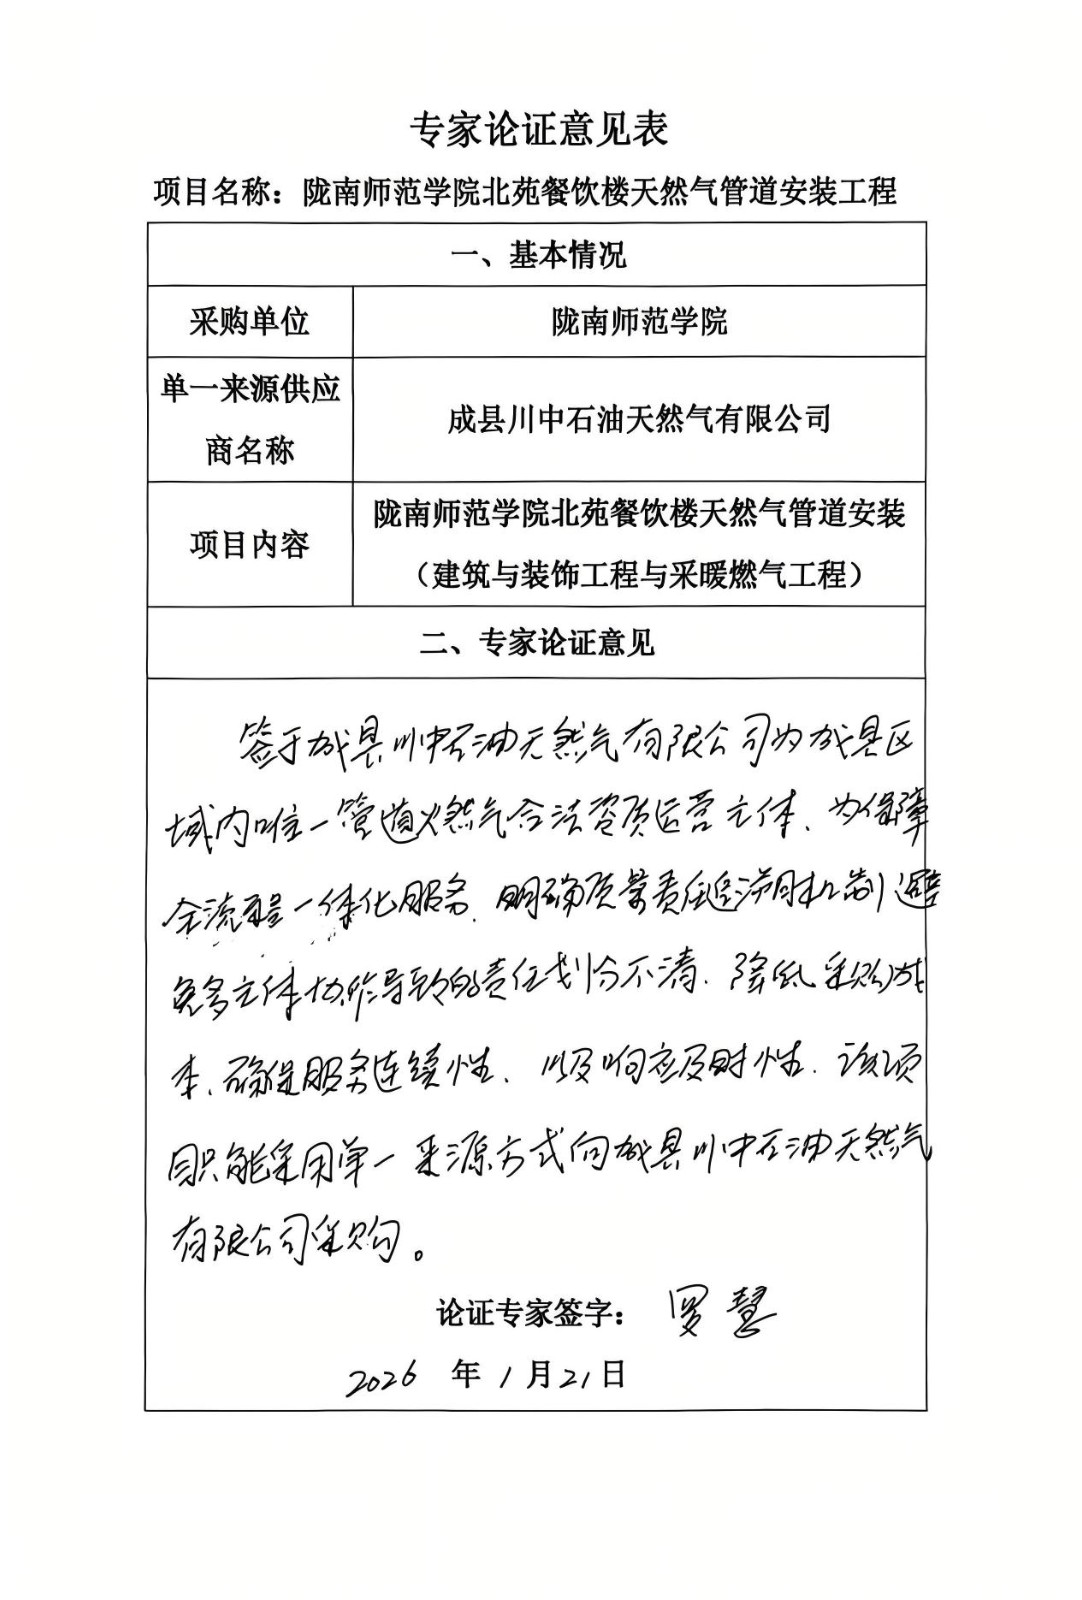 专家论证意见表
项目名称：陇南师范学院北苑餐饮楼天然气管道安装工程
一、基本情况
采购单位
陇南师范学院
单一来源供应
商名称
成县川中石油天然气有限公司
项目内容
陇南师范学院北苑餐饮楼天然气管道安装
（建筑与装饰工程与采暖燃气工程）
二、专家论证意见
签于成县川中石油天然气有限公司为成县区
域内唯一管道燃气合法资质运营主体、为保障
全流程一体化服务、明确质量责任追溯机制避
免多主体协作导致的责任划分不清、降低采购成
本、确保服务连续性、以及响应及时性、该项
目只能采用单一来源方式向成县川中石油天然气
有限公司采购。
论证专家签字：罗慧
2026 年 1 月 21 日